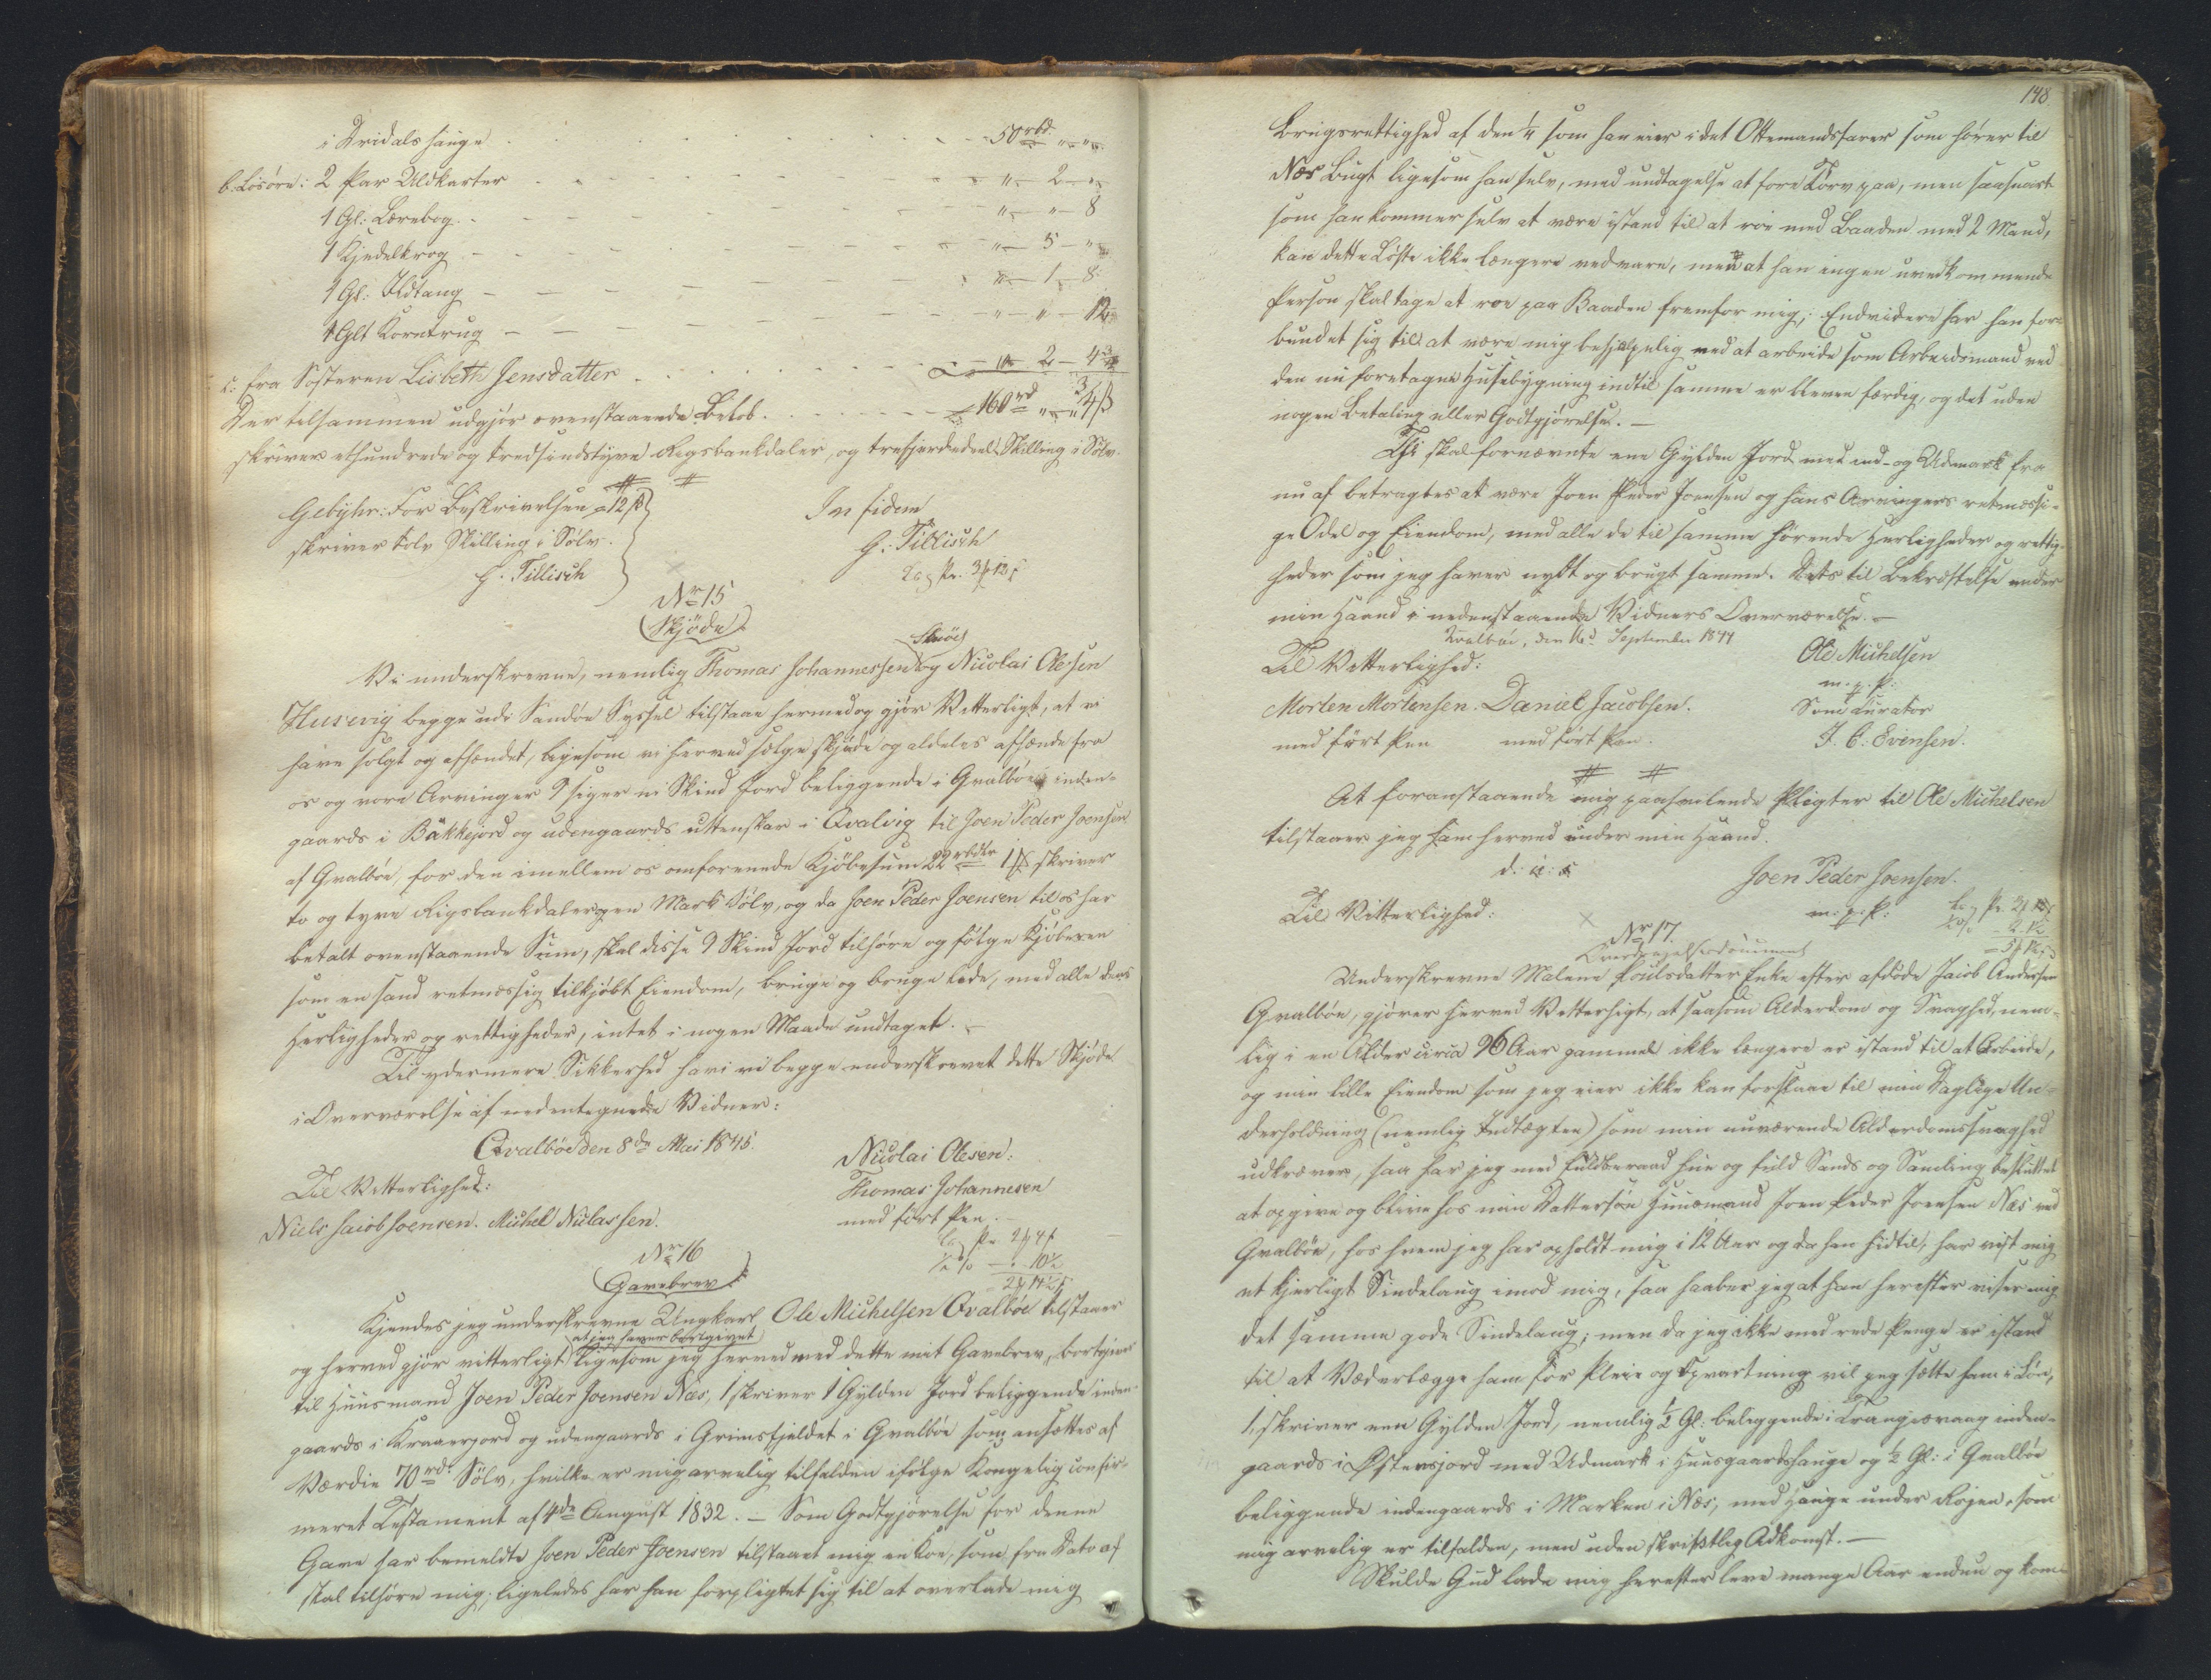 i Dridalshauge . . . 50 rbd. " "
b. Løsøre: 2 Par Uldkarter - - - " - 2 - "
1 Gl: Lærebog - - - " - " - 8
1 Kjedelkrog - - - " - 5 - "
1 Gl: Ildtang - - - " - 1 - 8
1 Glt Korntrug - - - " - " - 12
c: fra Søsteren Lisbeth Jensdatter . . . 2 - 4 3/4
Der tilsammen udgjør ovenstaaende Beløb . . . 160 rd " " 3/4 ß
skriver ethundrede og tredsindstyve Rigsbankdaler, og trefjerdedeel Skilling i Sølv.
Gebyhr: For Beskrivelsen = 12 ß
skriver tolv Skilling i Sølv.
G. Tillisch
In fidem
G: Tillisch
No 15
Skjøde
Skuøe
Vi underskrevne, nemlig Thomas Johannessen og Nicolai Olesen
Husevig begge udi Sandøe Syssel tilstaae hermed og gjør Vitterligt, at vi
have solgt og afhændet, ligesom vi herved sælge skjøde og aldeles afhænde fra
os og vore Arvinger 9 siger ni Skind Jord beliggende i Qvalbøe inden-
gaards i Bäkkejord og udengaards uttenskar i Qvalvig til Joen Peder Joensen
af Qvalbøe, for den imellem os omforenede Kjöbesum 22 rbdlr 1 # skriver
to og tyve Rigsbankdaler og en Mark Sølv, og da Joen Peder Joensen til os har
betalt ovenstaaende Sum, skal disse 9 Skind Jord tilhøre og følge Kjøberen
som en sand retmæssig tilkjøbt Eiendom, bruge og bruge lade, med alle dens
Herligheder og rettigheder, intet i nogen Maade undtaget. -
Til ydermere Sikkerhed have vi begge underskrevet dette Skjøde
i Overværelse af nedentegnede Vidner:
Qvalböe den 8de Mai 1845.
Nicolai Olesen:
Til Vitterlighed:
Thomas Johannesen
Niels Jacob Joensen. Michel Niclassen.
med ført Pen.
No 16
Gavebrev
Kjendes jeg underskrevne Ungkarl Ole Michelsen Qvalbøe tilstaaer
at jeg haver bortgivet
og herved gjør vitterligt ligesom jeg herved med dette mit Gavebrev, bortgiver
til Huusmand Joen Peder Joensen Næs, 1 skriver 1 Gylden Jord beliggende inden-
gaards i Kraaerjord og udengaards i Grimsfjeldet i Qvalböe som ansættes af
Værdie 70 rd. Sølv, hvilke er mig arvelig tilfalden ifølge Kongelig confir-
meret Testament af 4de August 1832. - Som Godtgjørelse for denne
Gave har bemeldte Joen Peder Joensen tilstaaet mig en Koe, som fra Dato af
skal tilhøre mig; ligeledes har han forpligtet sig til at overlade mig
148
Brugsrettighed af den 1/4 som han eier i det Ottemandsfarer som hører til
Næs Bugt ligesom han selv, med undtagelse at fore Törv paa, men saasnart
som han kommer selv at være istand til at roe med Baaden med 2 Mand,
kan dette Løfte ikke længere vedvare, men at han ingen uvedkommende
Person skal tage at roe paa Baaden fremfor mig; Endvidere har han for-
bundet sig til at være mig behjælpelig ved at arbeide som Arbeidsmand ved
den nu foretagne Huusebygning indtil samme er bleven færdig, og det uden
nogen Betaling eller Godtgjørelse. -
Thi skal fornævnte ene Gylden Jord med ind- og Udmark fra
nu af betragtes at være Joen Peder Joensen og hans Arvingers retmæssi-
ge Odel og Eiendom, med alle de til samme hørende Herligheder og rettig-
heder som jeg haver nydt og brugt samme. Dets til Bekræftelse under
min Haand i nedenstaaende Vidners Overværelse. -
Qvalböe, den 16d September 1844
Til Vitterlighed:
Ole Michelsen
m. f. P.
Morten Mortensen. Daniel Jacobsen.
Som Curator
med ført Pen med ført Pen.
J. C: Evensen.
At foranstaaende mig paahvilende Pligter til Ole Michelsen
tilstaaer jeg ham herved under min Haand.
d: u: s
Joen Peder Joensen.
Til Vitterlighed:
m. f. P:
No 17.
Overdragelsesdocument
Underskrevne Malene Poulsdatter Enke efter afdøde Jacob Andersen
Qvalbøe, gjører herved Vitterligt, at saasom Alderdom og Svaghed, nem-
lig i en Alder circa 96 Aar gammel ikke længere er istand til at Arbeide,
og min lille Eiendom som jeg eier ikke kan forslaae til min Daglige Un-
derholdning (nemlig Indtægten) som min nuværende Alderdomssvaghed
udkræver, saa har jeg med fuldberaad hue og fuld Sands og Samling besluttet
at opgive og blive hos min Dattersøn Huusmand Joen Peder Joensen Næs ved
Qvalbøe, hos hvem jeg har opholdt mig i 12 Aar og da han hidtil, har vist mig
et kjerligt Sindelaug imod mig, saa haaber jeg at han herefter viser mig
det samme gode Sindelaug; men da jeg ikke med rede Penge er istand
til at Vederlægge ham for Pleie og Opvartning vil jeg sætte ham i Løn,
1. skriver een Gylden Jord, nemlig 1/2 Gl: beliggende i Trangisvaag inden-
gaards i Østensjord med Udmark i Huusgaardshauge og 1/2 Gl: i Qvalbøe
beliggende indengaards i Marken i Næs, med Hauge under Røjen, som
mig arvelig er tilfalden, men uden skriftlig Adkomst. -
Skulde Gud lade mig herefter leve mange Aar endnu og kom-